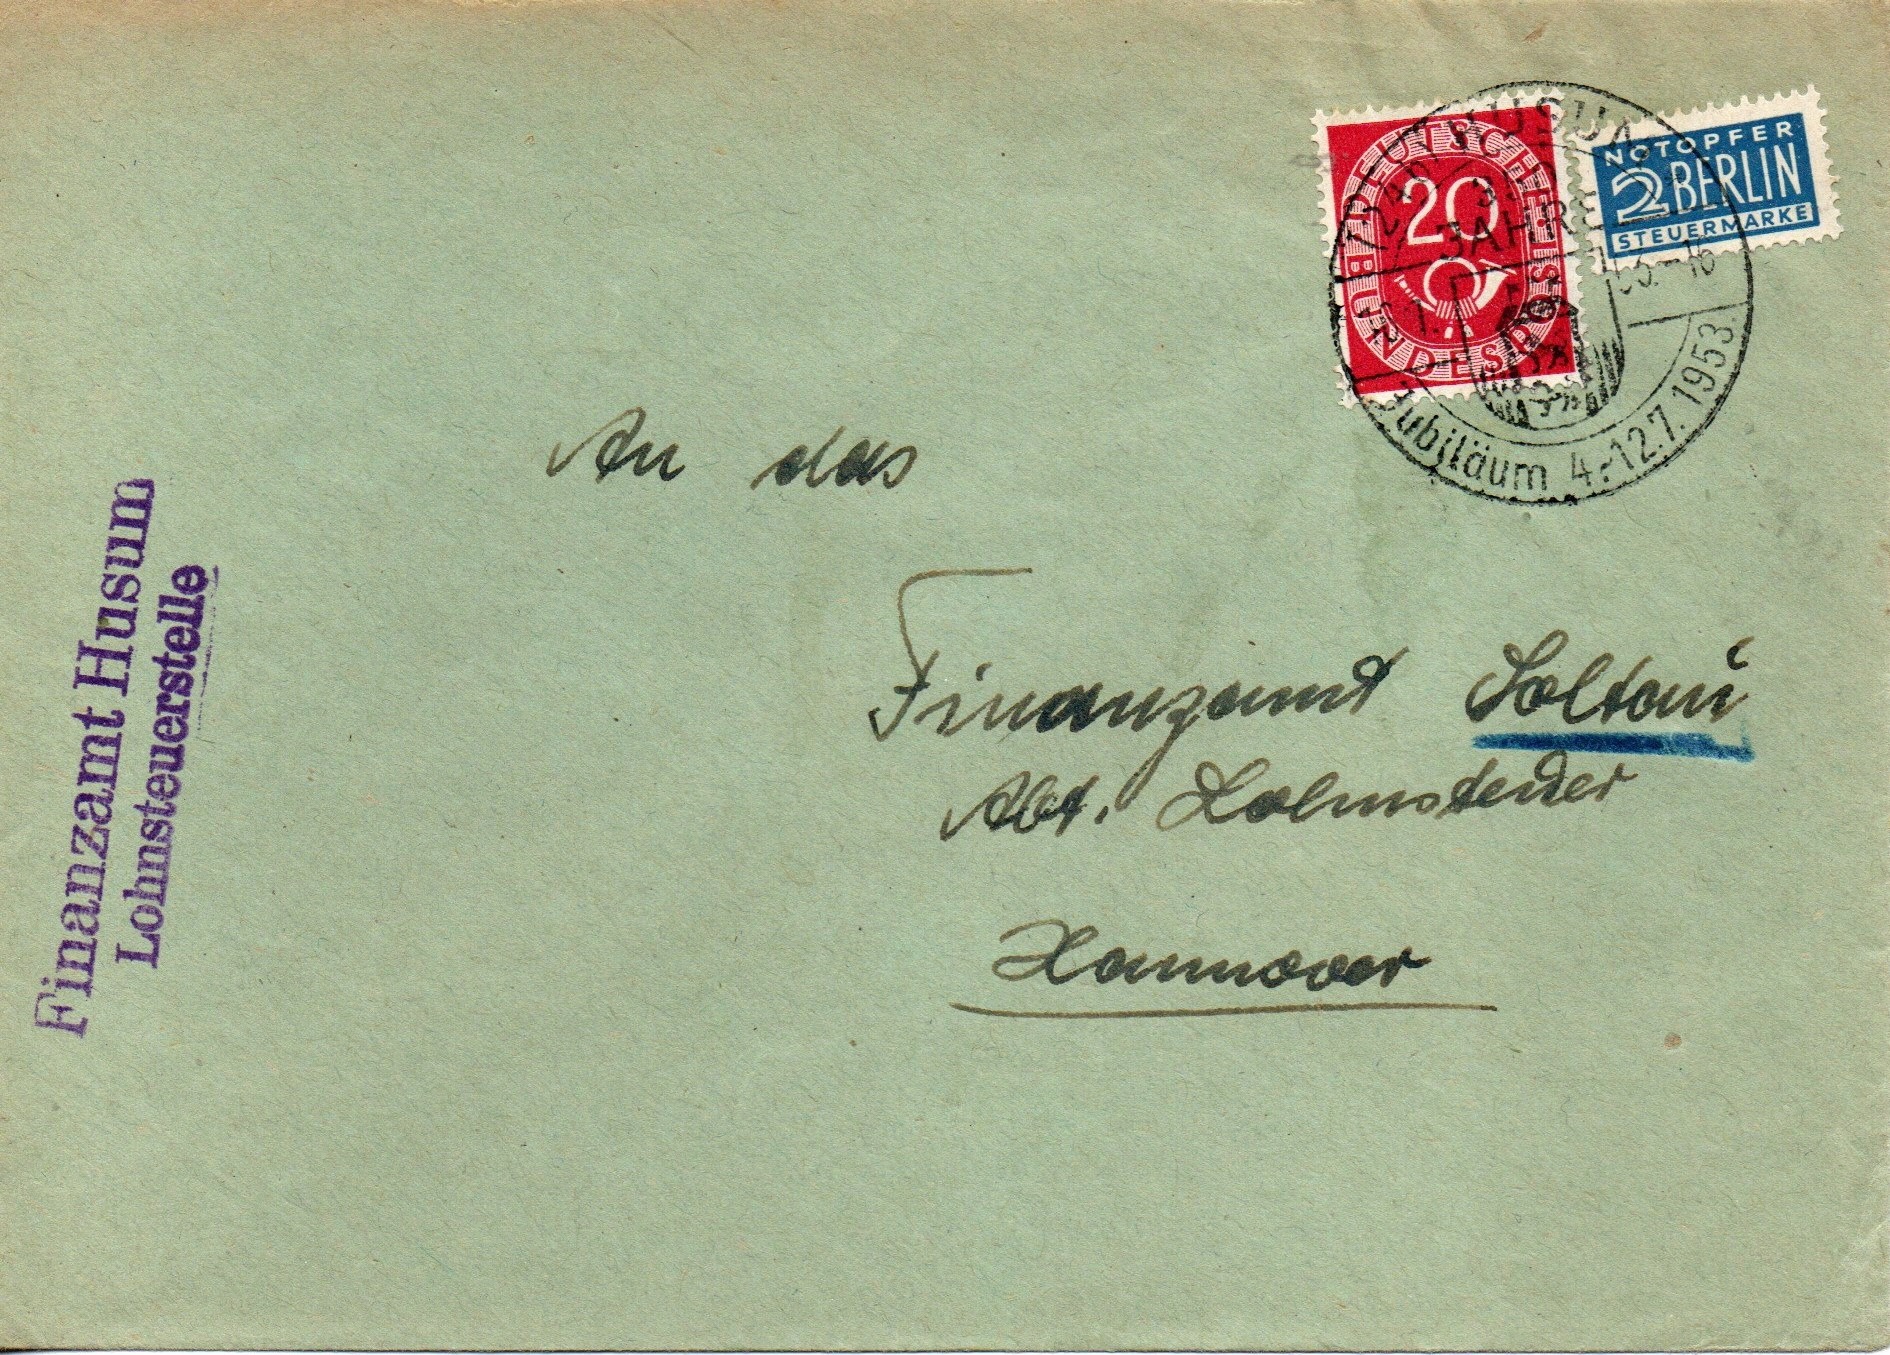 Finanzamt Husum
Lohnsteuerstelle
DEUTSCHE BUNDESPOST
20
NOTOPFER
2 BERLIN
STEUERMARKE
(24b) HUSUM
JAHRE
53.-16
Jubiläum 4.-12.7.1953.
An das
Finanzamt Soltau
Abt. Lohnsteuer
Hannover